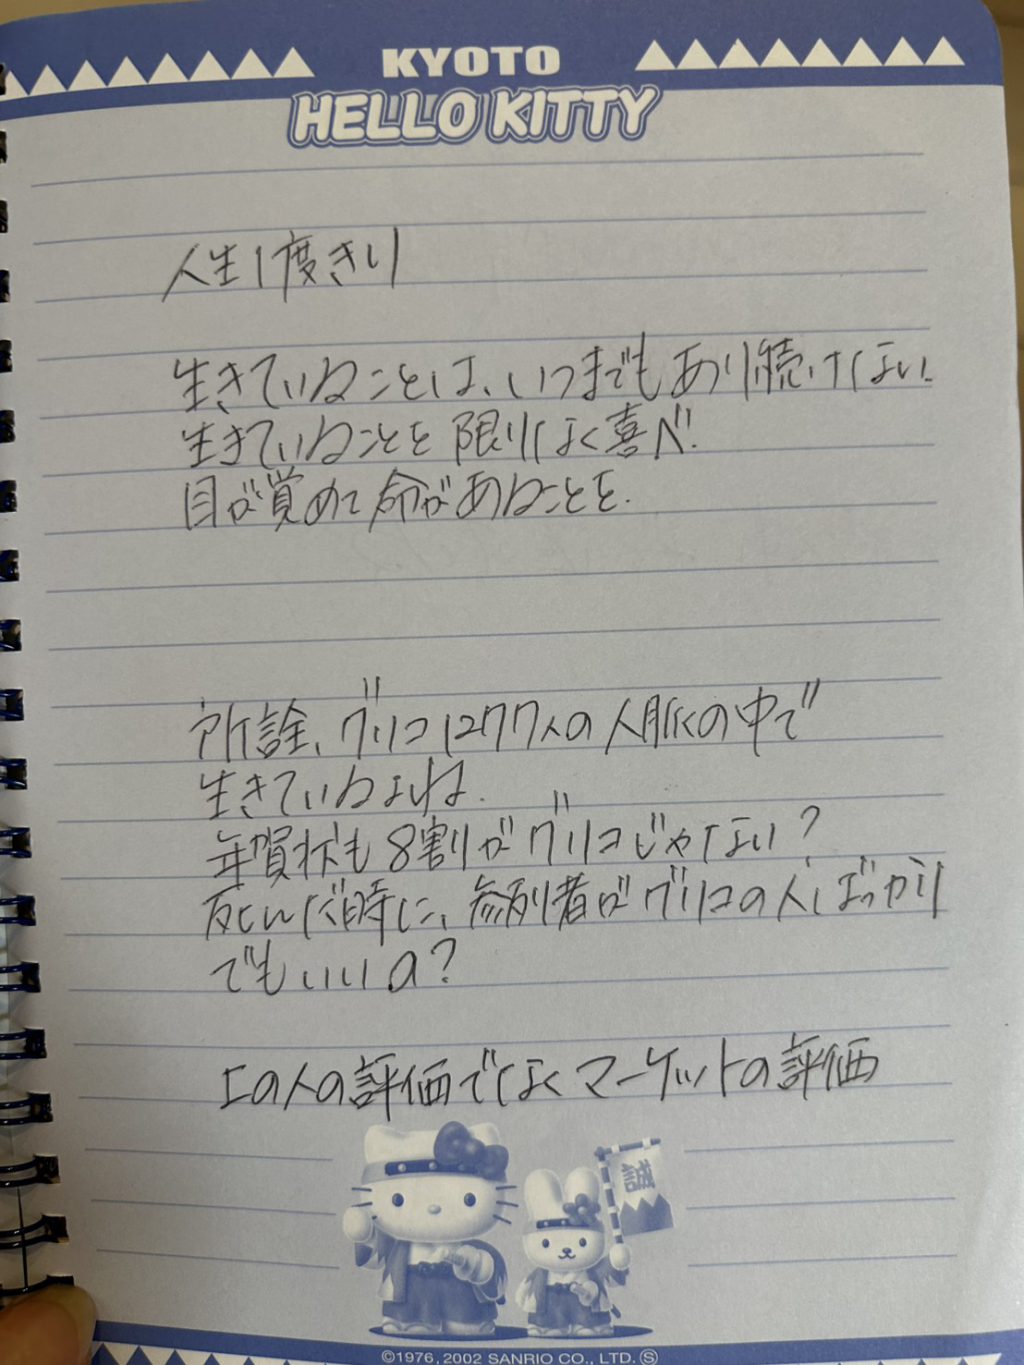 KYOTO
HELLO KITTY
人生1度きり
生きていることは、いつまでもあり続けない.
生きていることを限りなく喜べ.
目が覚めて命があることを.
所詮、グリコ1277人の人脈の中で
生きているよね.
年賀状も8割がグリコじゃない?
死んだ時に、参列者がグリコの人ばっかり
でもいいの?
上の人の評価でなくマーケットの評価
誠
©1976, 2002 SANRIO CO., LTD. Ⓢ